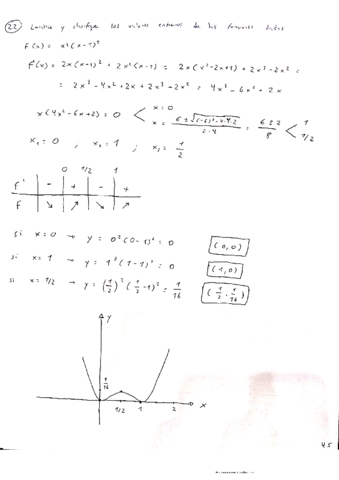 22 Localiza y clasifica los valores extremos de las funciones dadas
F(x) = x²(x-1)²
F'(x) = 2x(x-1)² + 2x²(x-1) = 2x(x²-2x+1) + 2x³-2x² =
= 2x³ - 4x² + 2x + 2x³ - 2x² = 4x³ - 6x² + 2x
x(4x² - 6x + 2) = 0 < x = 0
x = 6 ± √(-6)² - 4·4·2 / 2·4 = 6 ± 2 / 8 < 1
1/2
x₁ = 0 ; x₂ = 1 ; x₃ = 1/2
0 1/2 1
F' - + - +
F ↘ ↗ ↘ ↗
si x = 0 → y = 0²(0-1)² = 0 (0,0)
si x = 1 → y = 1²(1-1)² = 0 (1,0)
si x = 1/2 → y = (1/2)² (1/2 - 1)² = 1/16 (1/2, 1/16)
y
1/2 1 2 x
45